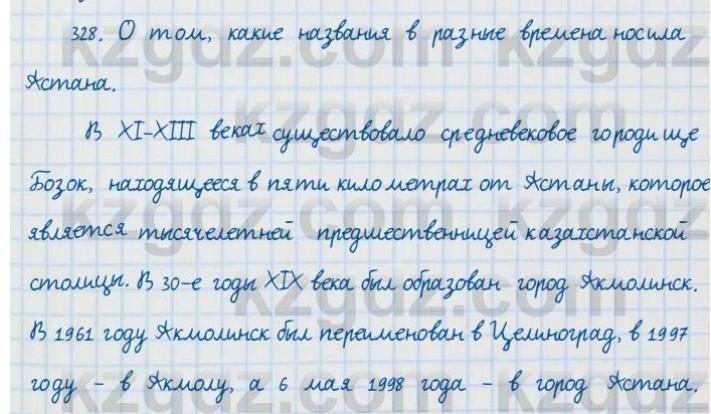 328. О том, какие названия в разные времена носила
Астана.
В XI-XIII веках существовало средневековое городище
Бозок, находящееся в пяти километрах от Астаны, которое
является тысячелетней предшественницей казахстанской
столицы. В 30-е годы XIX века был образован город Акмолинск.
В 1961 году Акмолинск был переименован в Целиноград, в 1997
году - в Акмолу, а 6 мая 1998 года - в город Астана.
kzgdz.com kzgdz.com kzgdz
kzgdz.com kzgdz.com kzgdz
kzgdz.com kzgdz.com